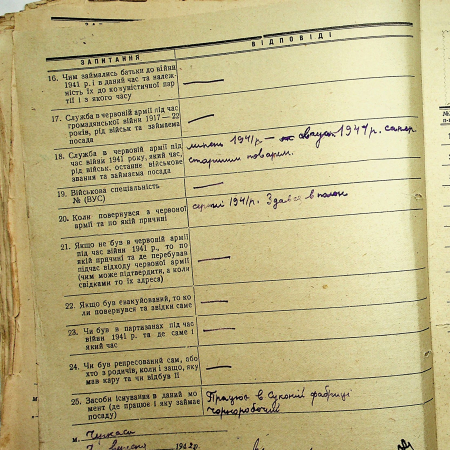 ЗАПИТАННЯ
ВІДПОВІДІ
16. Чим займались батьки до війни
1941 р. і в даний час та належ-
ність їх до комуністичної пар-
тії і з якого часу
—
17. Служба в червоній армії під час
громадянської війни 1917—22
років, рід військ та займаєма
посада
—
18. Служба в червоній армії під
час війни 1941 року, який час,
рід військ, останнє військове
звання та займаєма посада
1941 р. — 1941 р. сапер
старшим поваром.
19. Військова спеціальність
№ (ВУС)
—
20. Коли повернувся з червоної
армії та по якій причині
серпні 1941 р. Здався в полон
21. Якщо не був в червоній армії
під час війни 1941 р., то по
якій причині та де перебував
підчас відходу червоної армії
(чим може підтвердити, а коли
свідками то їх адреса)
—
22. Якщо був евакуйований, то ко
ли повернувся та звідки саме
—
23. Чи був в партизанах під час
війни 1941 р. та де саме і
який час
—
24. Чи був репресований сам, або
хто з родичів, коли і защо, яку
мав кару та чи відбув її
—
25. Засоби існування в даний мо
мент (де працює і яку займає
посаду)
Працюю в Суконій фабриці
Чорноробочий
м. Черкаси
1942 р.